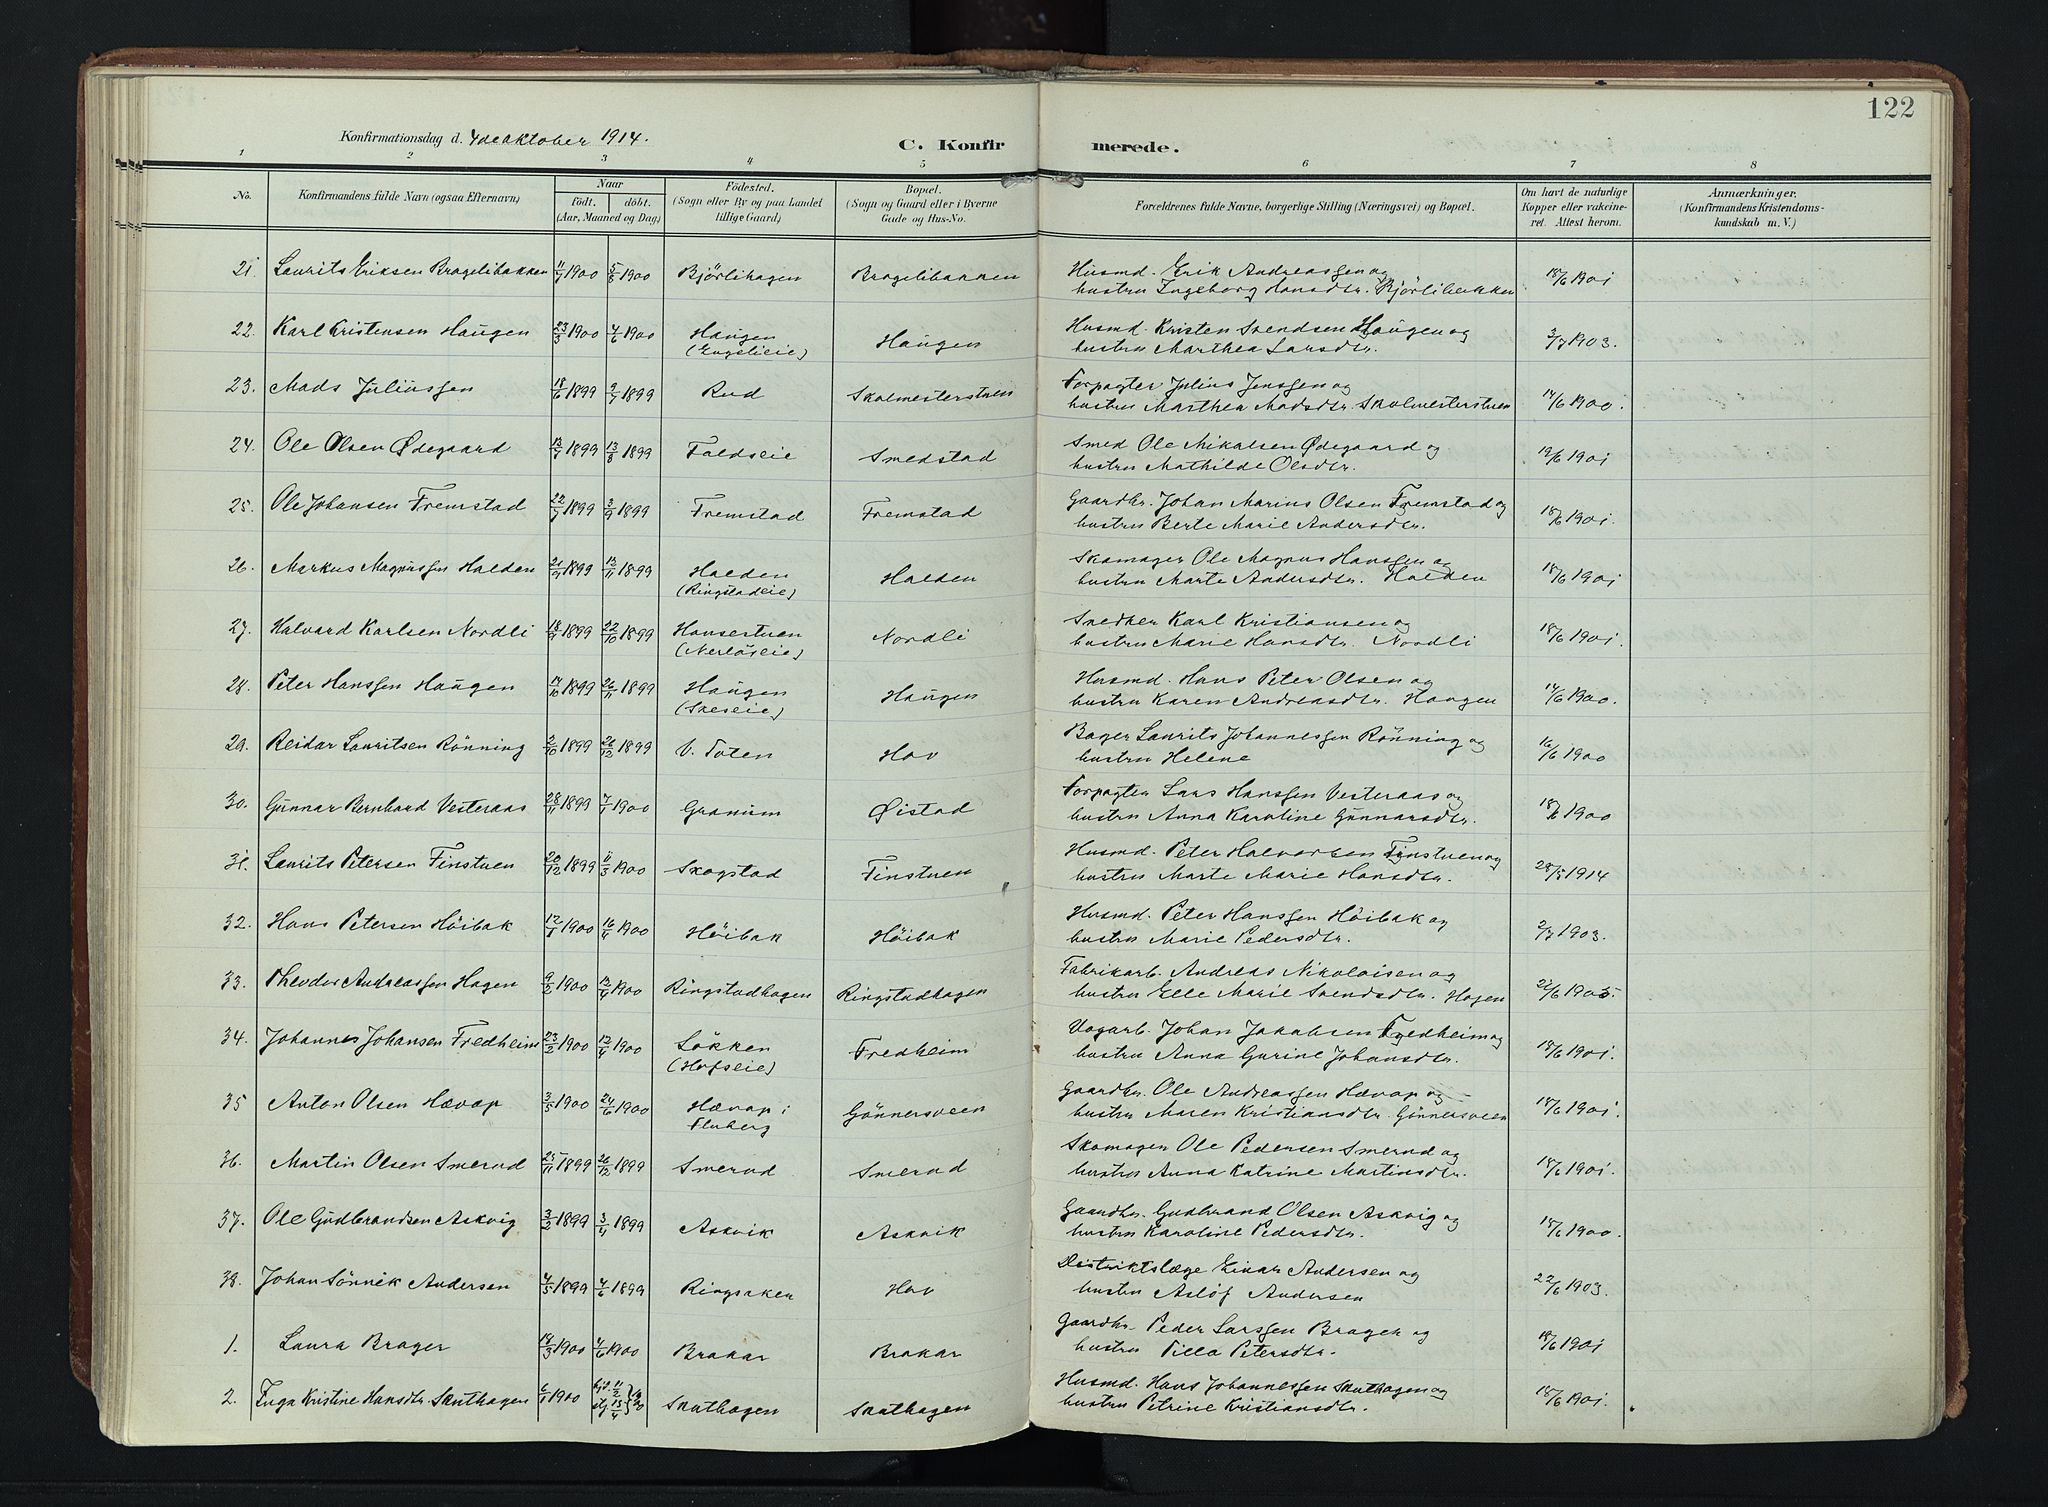 122
Konfirmationsdag d. 4de Oktober 1914.
C. Konfirmerede.
1 2 3 4 5 6 7 8
No. Konfirmandens fulde Navn (ogsaa Efternavn) Naar födt. döbt. (Aar, Maaned og Dag) Födested. (Sogn eller By og paa Landet tillige Gaard) Bopæl. (Sogn og Gaard eller i Byerne Gade og Hus-No. Forældrenes fulde Navne, borgerlige Stilling (Næringsvei) og Bopæl. Om havt de naturlige Kopper eller vakcineret. Attest herom. Anmærkninger. (Konfirmandens Kristendomskundskab m. V.)
21. Laurits Eriksen Bragelibakken 11/3 1900 5/8 1900 Bjørlihagen Bragelibakken Husmd. Erik Andreassen og
hustru Ingeborg Hansdtr. Bjørlibakken 18/6 1901
22. Karl Kristensen Haugen 23/3 1900 4/6 1900 Haugen Haugen Husmd. Kristen Svendsen Haugen og
(Engelieie) hustru Marthea Larsdtr. 3/7 1903.
23. Mads Juliussen 18/6 1899 9/7 1899 Rud Skolmesterstuen Forpagter Julius Jenssen og
hustru Marthea Madsdtr. Skolmesterstuen 14/6 1900.
24. Ole Olsen Ødegaard 13/7 1899 13/8 1899 Faldseie Smedstad Smed Ole Mikalsen Ødegaard og
hustru Mathilde Olsdtr. 19/6 1901
25. Ole Johansen Fremstad 22/7 1899 3/9 1899 Fremstad Fremstad Gaardbr. Johan Marius Olsen Fremstad og
hustru Berte Marie Andersdtr. 18/6 1901.
26. Markus Magnussen Halden 21/9 1899 12/11 1899 Halden Halden Skomager Ole Magnus Hanssen og
(Ringstadeie) hustru Marte Andersdtr. Halden 18/6 1901
27. Halvard Karlsen Nordli 18/9 1899 22/10 1899 Hansestuen Nordli Snedker Karl Kristiansen og
(Nerløseie) hustru Marie Hansdtr. Nordli 18/6 1901.
28. Peter Hanssen Haugen 14/10 1899 26/11 1899 Haugen Haugen Husmd. Hans Peter Olsen og
(Skeseie) hustru Karen Andreasdtr. Haugen 14/6 1900.
29. Reidar Lauritsen Rønning 2/10 1899 26/12 1899 V. Toten Hov Bager Laurits Johannessen Rønning og
hustru Helene 16/6 1900
30. Gunnar Bernhard Vesteraas 28/11 1899 7/1 1900 Granum Øistad Forpagter Lars Hanssen Vesteraas og
hustru Anna Karoline Gunnarsdtr. 18/6 1900
31. Laurits Petersen Finstuen 20/12 1899 11/3 1900 Skogstad Finstuen Husmd. Peter Halvorsen Finstuen og
hustru Marte Marie Hansdtr. 28/5 1914
32. Hans Petersen Høibak 12/1 1900 16/4 1900 Høibak Høibak Husmd. Peter Hanssen Høibak og
hustru Marie Pedersdtr. 2/7 1903.
33. Theodor Andreassen Hagen 9/2 1900 12/4 1900 Ringstadhagen Ringstadhagen Fabrikarb. Andreas Nikolaisen og
hustru Elle Marie Svendsdtr. Hagen 21/6 1905.
34. Johannes Johansen Fredheim 23/2 1900 12/4 1900 Løkken Fredheim Vogarb. Johan Jakobsen Fredheim og
(Hofseie) hustru Anna Gurine Johansdtr. 18/6 1901.
35 Anton Olsen Hævap 3/5 1900 24/6 1900 Hævap i Gønnersveen Gaardbr. Ole Andreassen Hævap og
Fluberg hustru Maren Kristiansdtr. Gønnersveen 18/6 1901.
36. Martin Olsen Smerud 25/11 1899 26/12 1899 Smerud Smerud Skomager Ole Pedersen Smerud og
hustru Anna Katrine Martinsdtr. 18/6 1901.
37. Ole Gudbrandsen Askvig 3/2 1899 3/4 1899 Askvik Askvik Gaardbr. Gudbrand Olsen Askvig og
hustru Karoline Pedersdtr. 18/6 1900.
38. Johan Sønnik Andersen 4/5 1899 4/6 1899 Ringsaker Hov Distriktslæge Einar Andersen og
hustru Asløf Andersen 22/6 1903.
1. Laura Brager 18/3 1900 4/6 1900 Brakar Brakar Gaardbr. Peder Larssen Brager og
hustru Pilla Petersdtr. 18/6 1901
2. Inga Kristine Hansdtr. Skuthagen 6/1 1900 11/2 13/4 Skuthagen Skuthagen Husmd. Hans Johannessen Skuthagen og
hustru Petrine Kristiansdtr. 18/6 1901.